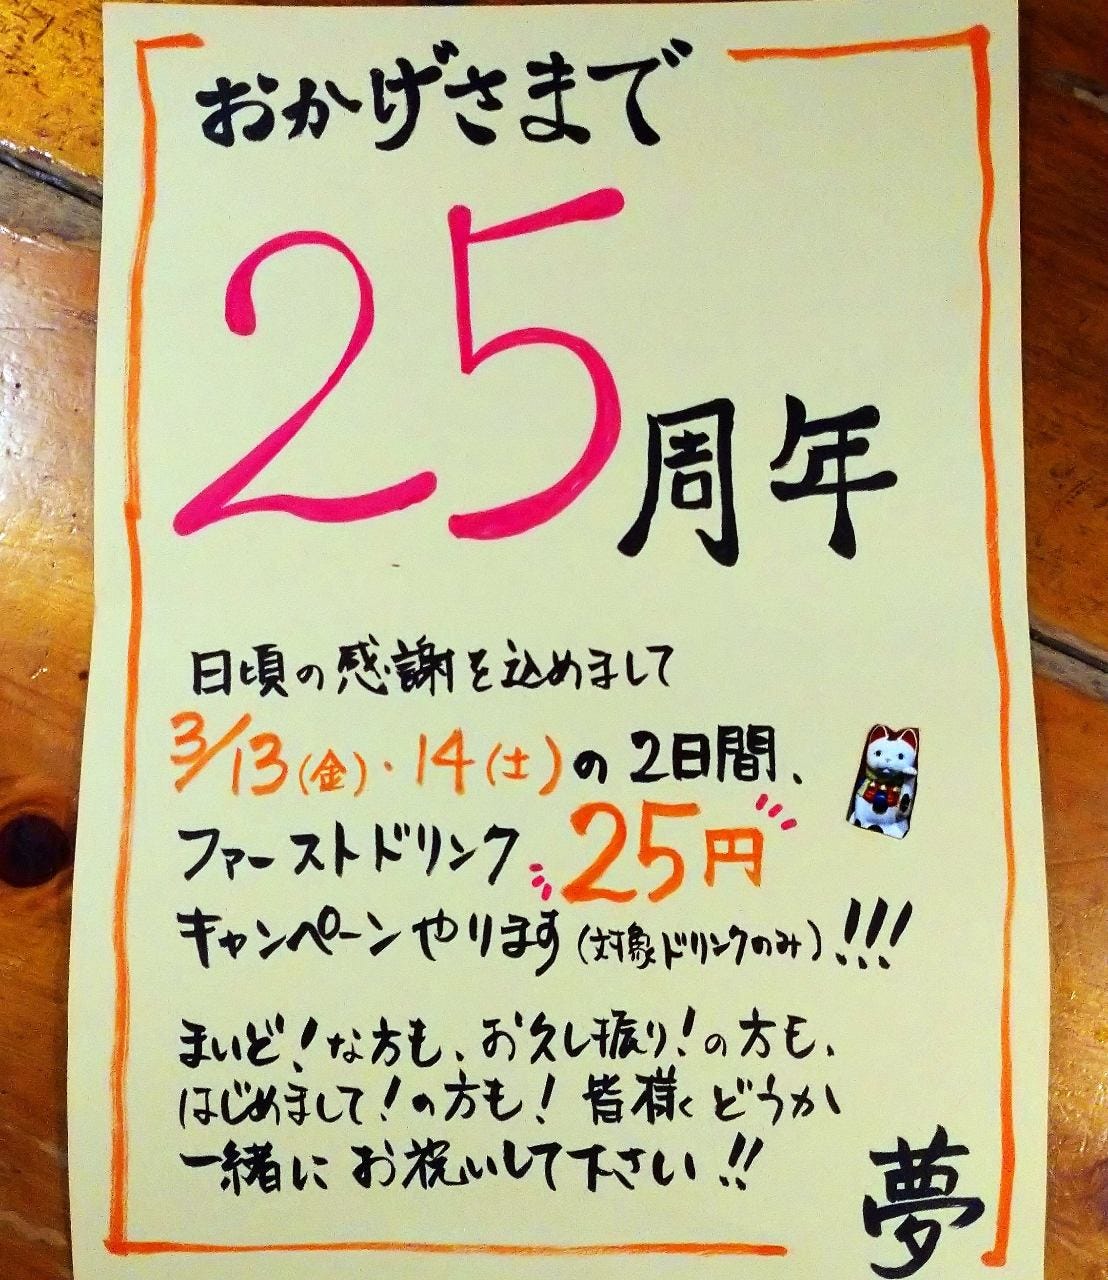 おかげさまで
25周年
日頃の感謝を込めまして
3/13(金)・14(土)の2日間、
ファーストドリンク 25円
キャンペーンやります(対象ドリンクのみ)!!!
まいど!な方も、お久し振り!の方も、
はじめまして!の方も! 皆様どうか
一緒にお祝いして下さい!!
夢